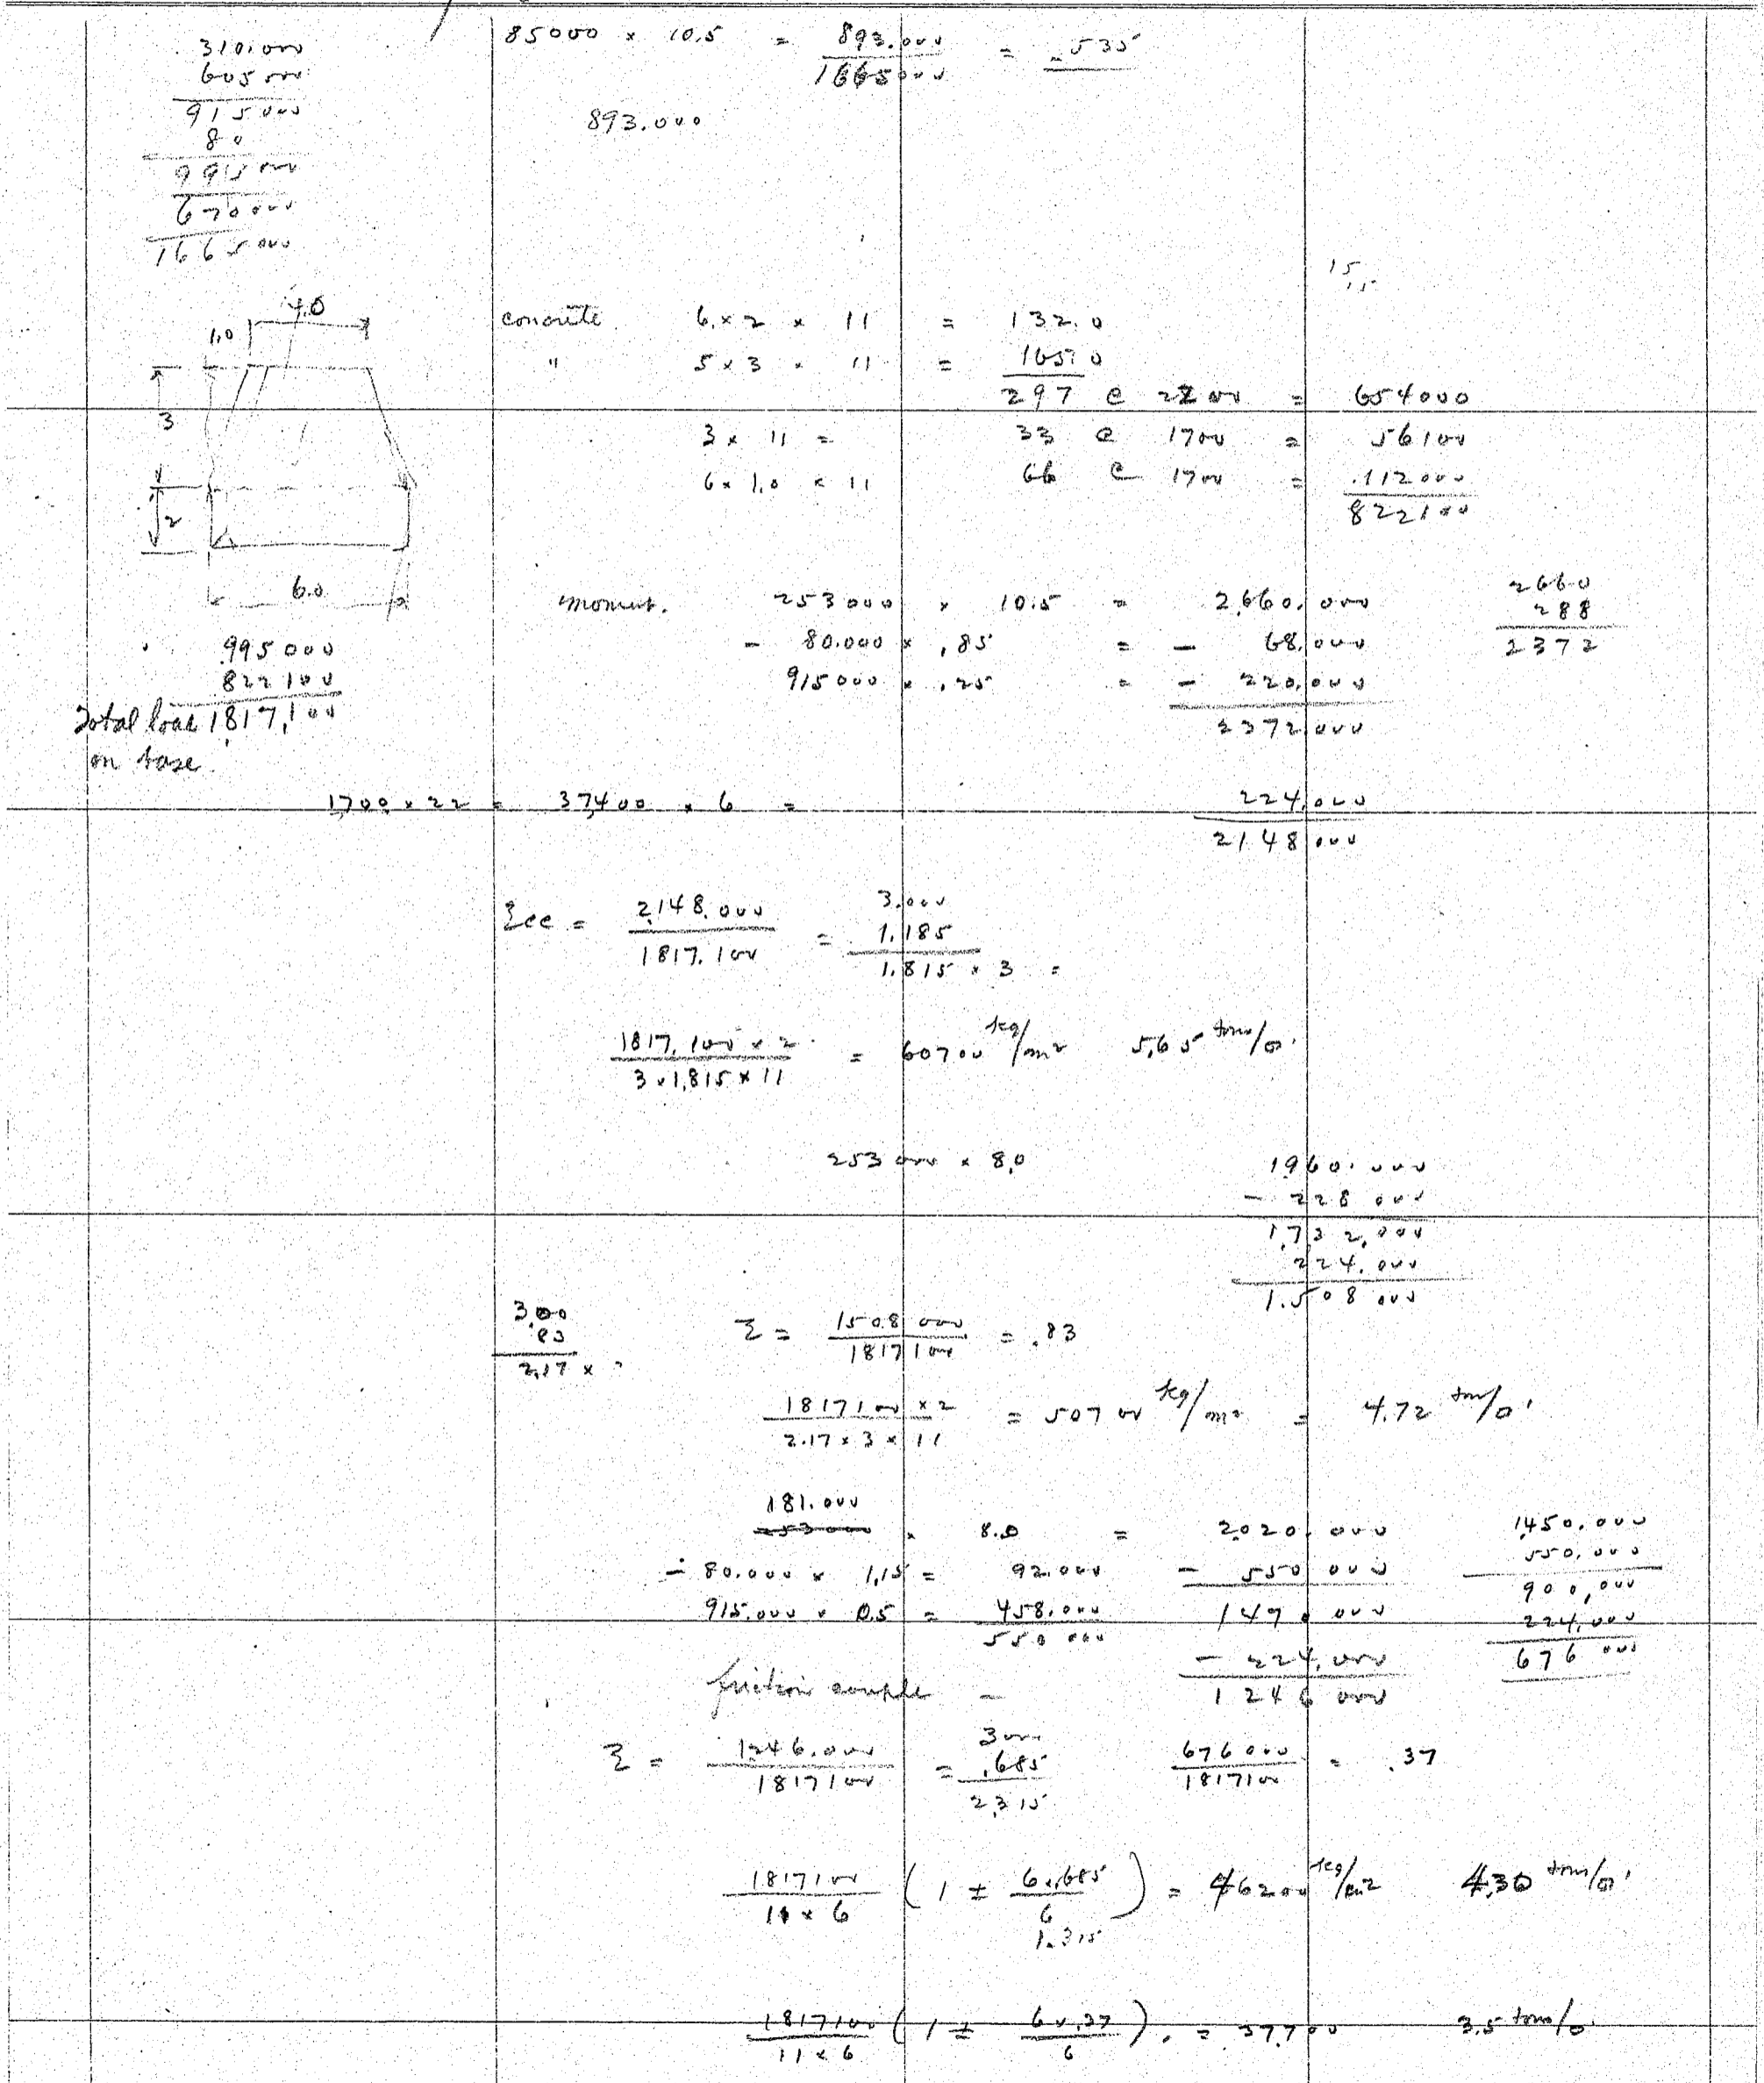 310.000
605000
915000
80
995000
670000
1665000
85000 × 10.5 = 893.000 / 1665000 = .535
893.000
15,
4.0
1.0
3
2
6.0
concrete 6 × 2 × 11 = 132.0
" 5 × 3 × 11 = 165.0
297 @ 2200 = 654000
3 × 11 = 33 @ 1700 = 56100
6 × 1.0 × 11 66 @ 1700 = 112000
822100
moment. 253000 × 10.5 = 2,660,000
- 80.000 × .85 = - 68,000
915000 × .25 = - 220,000
2372000
2660
288
2372
995000
822100
Total load 1817,100
on base
1700 × 22 = 37400 × 6 = 224,000
2148000
Ecc = 2,148.000 / 1817.100 = 1.185
3.000
1.185
1.815 × 3 =
1817,100 × 2 / 3 × 1.815 × 11 = 60700 kg/m² 5.65 tons/□'
253000 × 8.0 1960.000
- 228000
1,732,000
224.000
1.508000
3.00
.83
2.17 ×
Σ = 1508000 / 1817100 = .83
1817100 × 2 / 2.17 × 3 × 11 = 50700 kg/m² = 4.72 ton/□'
181.000
253000 × 8.0 = 2020,000
- 80.000 × 1.15 = 92.000 - 550000
915.000 × 0.5 = 458.000 1470000
550000
friction couple - - 224,000
1246000
1,450,000
550,000
900,000
224,000
676000
Σ = 1246.000 / 1817100 = .685
3000
.685
2.315
676000 / 1817100 = .37
1817100 / 11 × 6 ( 1 ± 6×.685 / 6 ) = 46200 kg/m² 4.30 tons/□'
1.315
1817100 / 11 × 6 ( 1 ± 6×.37 / 6 ) = 37,700 3.5 tons/□'